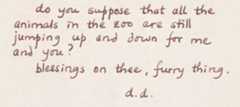 do you suppose that all the
animals in the zoo are still
jumping up and down for me
and you?
blessings on thee, furry thing.
d.d.